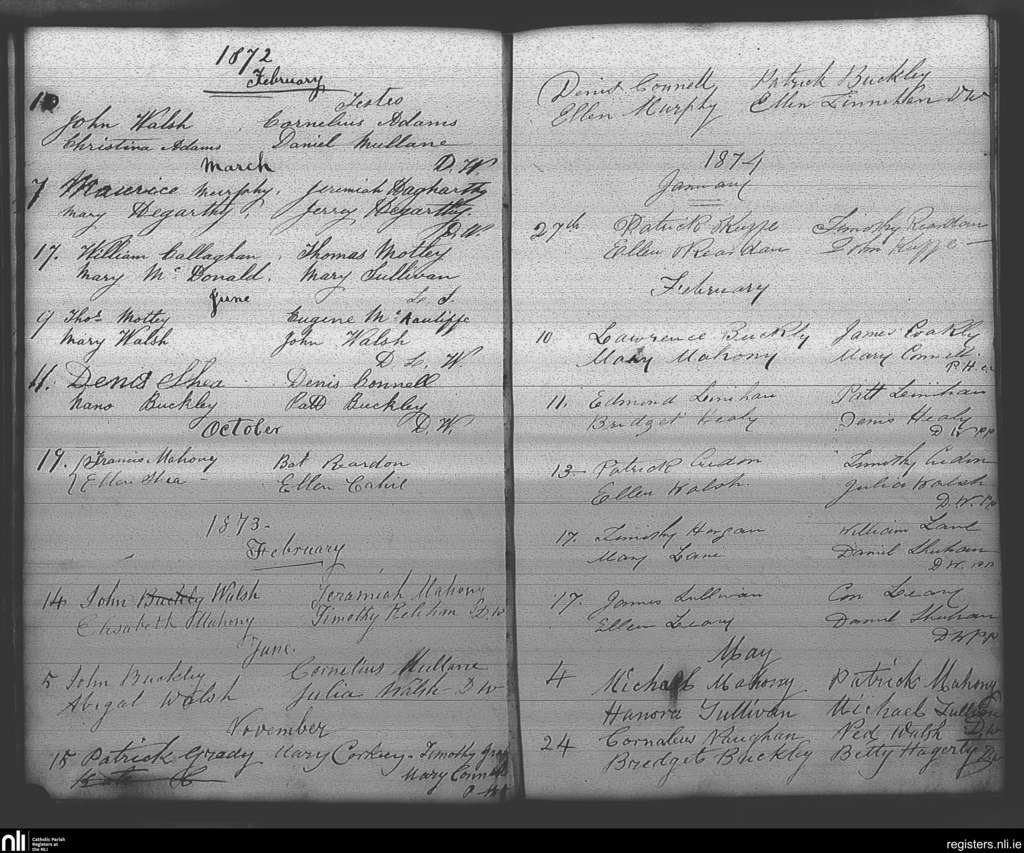 1872
February
10 Testes
John Walsh Cornelius Adams
Christina Adams Daniel Mullane
March D. W.
7 Maurice Murphy. Jeremiah Hagharthy
Mary Hegarthy, Jerry Hegarthy.
D. W.
17. William Callaghan, Thomas Mottey
Mary Mc Donald. Mary Sullivan
June
9 Thos Mottey Eugene Mc Auuliffe
Mary Walsh John Walsh
D L. W
11. Denis Shea Denis Connell
Nano Buckley Patt Buckley
October D. W.
19. Francis Mahony Bat Reardon
Ellen Shea - Ellen Cahil
1873-
February
14 John Buckley Walsh Jeramiah Mahony
Elisabeth Mahony Timothy D. W
June.
5 John Buckley Cornelius Mullane
Abigal Walsh Julia Walsh D W
November
15 Patrick Grady Mary Corkery - Timothy
Mary
Denis Connell Patrick Buckley
Ellen Murphy Ellen Linnehan D W
1874
January
27th Patrick Timothy Reardon
Ellen Reardan John
February
10 Lawrence Buckly James Coakly
Mary Mahony Mary Connell
P. H. cc
11. Edmond Linehan Patt Linihan
Bridget Healy Denis Healy
D W PP
13- Patrick Credon Timothy Credon
Ellen Walsh. Julia Walsh
D. W. Pp
17. Timothy Horgan William Lane
Mary Lane Daniel Shuhan
D W. PP
17. James Sullivan Con Leary
Ellen Leary Daniel Shuhan
D W Pp
May
4 Michael Mahony Patrick Mahony
Hanora Sullivan Michael Sullivan
24 Cornalius Vaughan Ned Walsh D. W
Bridget Buckley Betty Hagerty
nli Catholic Parish Registers at the NLI
registers.nli.ie